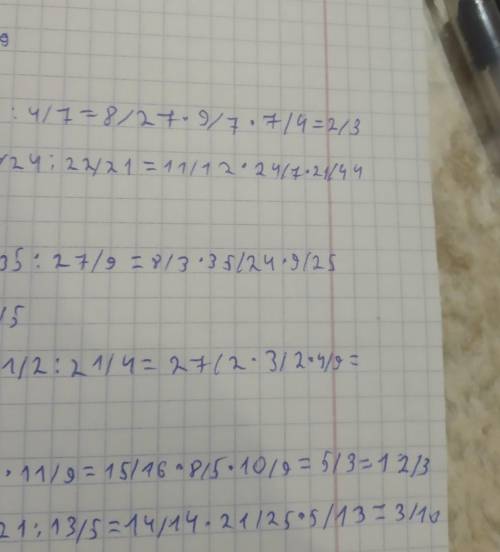 9
: 4/7 = 8/27 · 9/7 · 7/4 = 2/3
/24 : 22/21 = 11/12 · 24/7 · 21/44
35 : 27/9 = 8/3 · 35/24 · 9/25
15
1/2 : 21/4 = 27/2 · 3/2 · 4/9 =
· 11/9 = 15/16 · 8/5 · 10/9 = 5/3 = 1 2/3
21 : 13/5 = 14/14 · 21/25 · 5/13 = 3/10